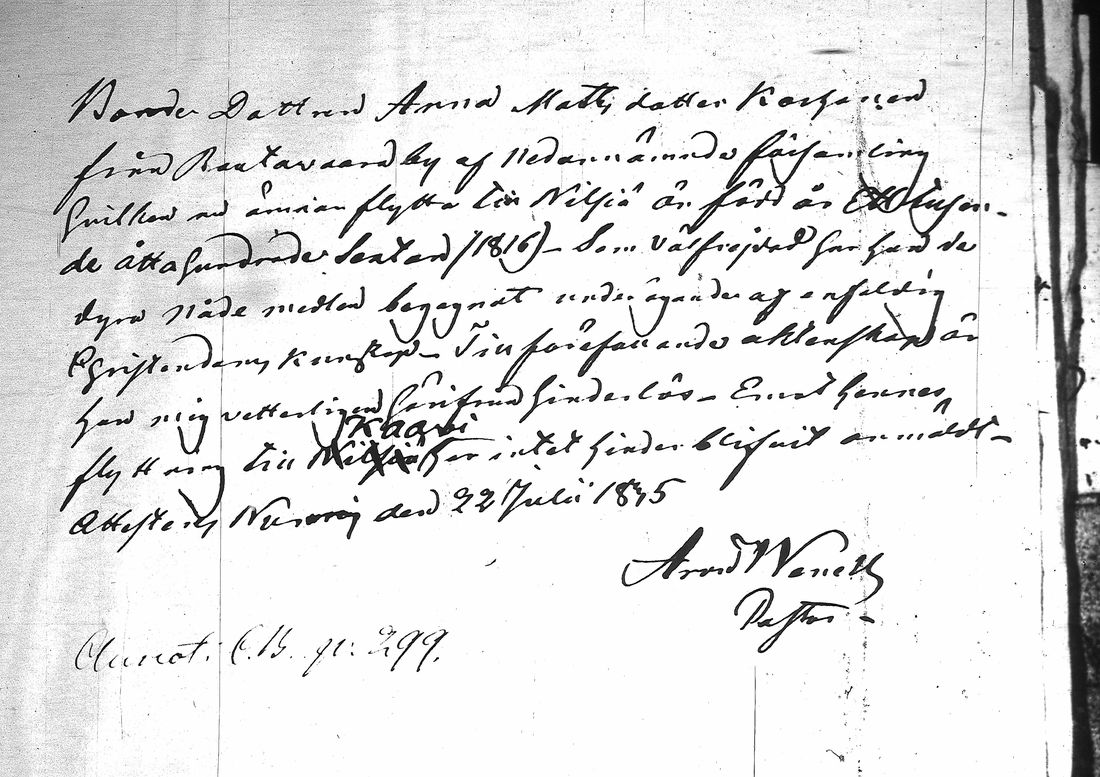 Bonde Dattren Anna Matts dotter Korhonen
från Rautavaara by af Nedannämnde församling
hvilken nu ämnar flytta till Nilsiä är född år Ett tusen-
de åttahundrade Sextan /1816/ - Som välfrejdad har hon de
dyra Nåde medlen begagnat under ägande af enfaldig
Christendoms kunskap - Till förefallande äktenskap är
hon mig vetterligen härifrån hinderlös - Emot hennes
Kaavi
flyttning till Nilsiä har intet hinder blifvit anmäldt -
Attesteras Nurmis den 22 Julii 1835
Arvid Wenell
Pastor -
Annot. C.B. p. 299.